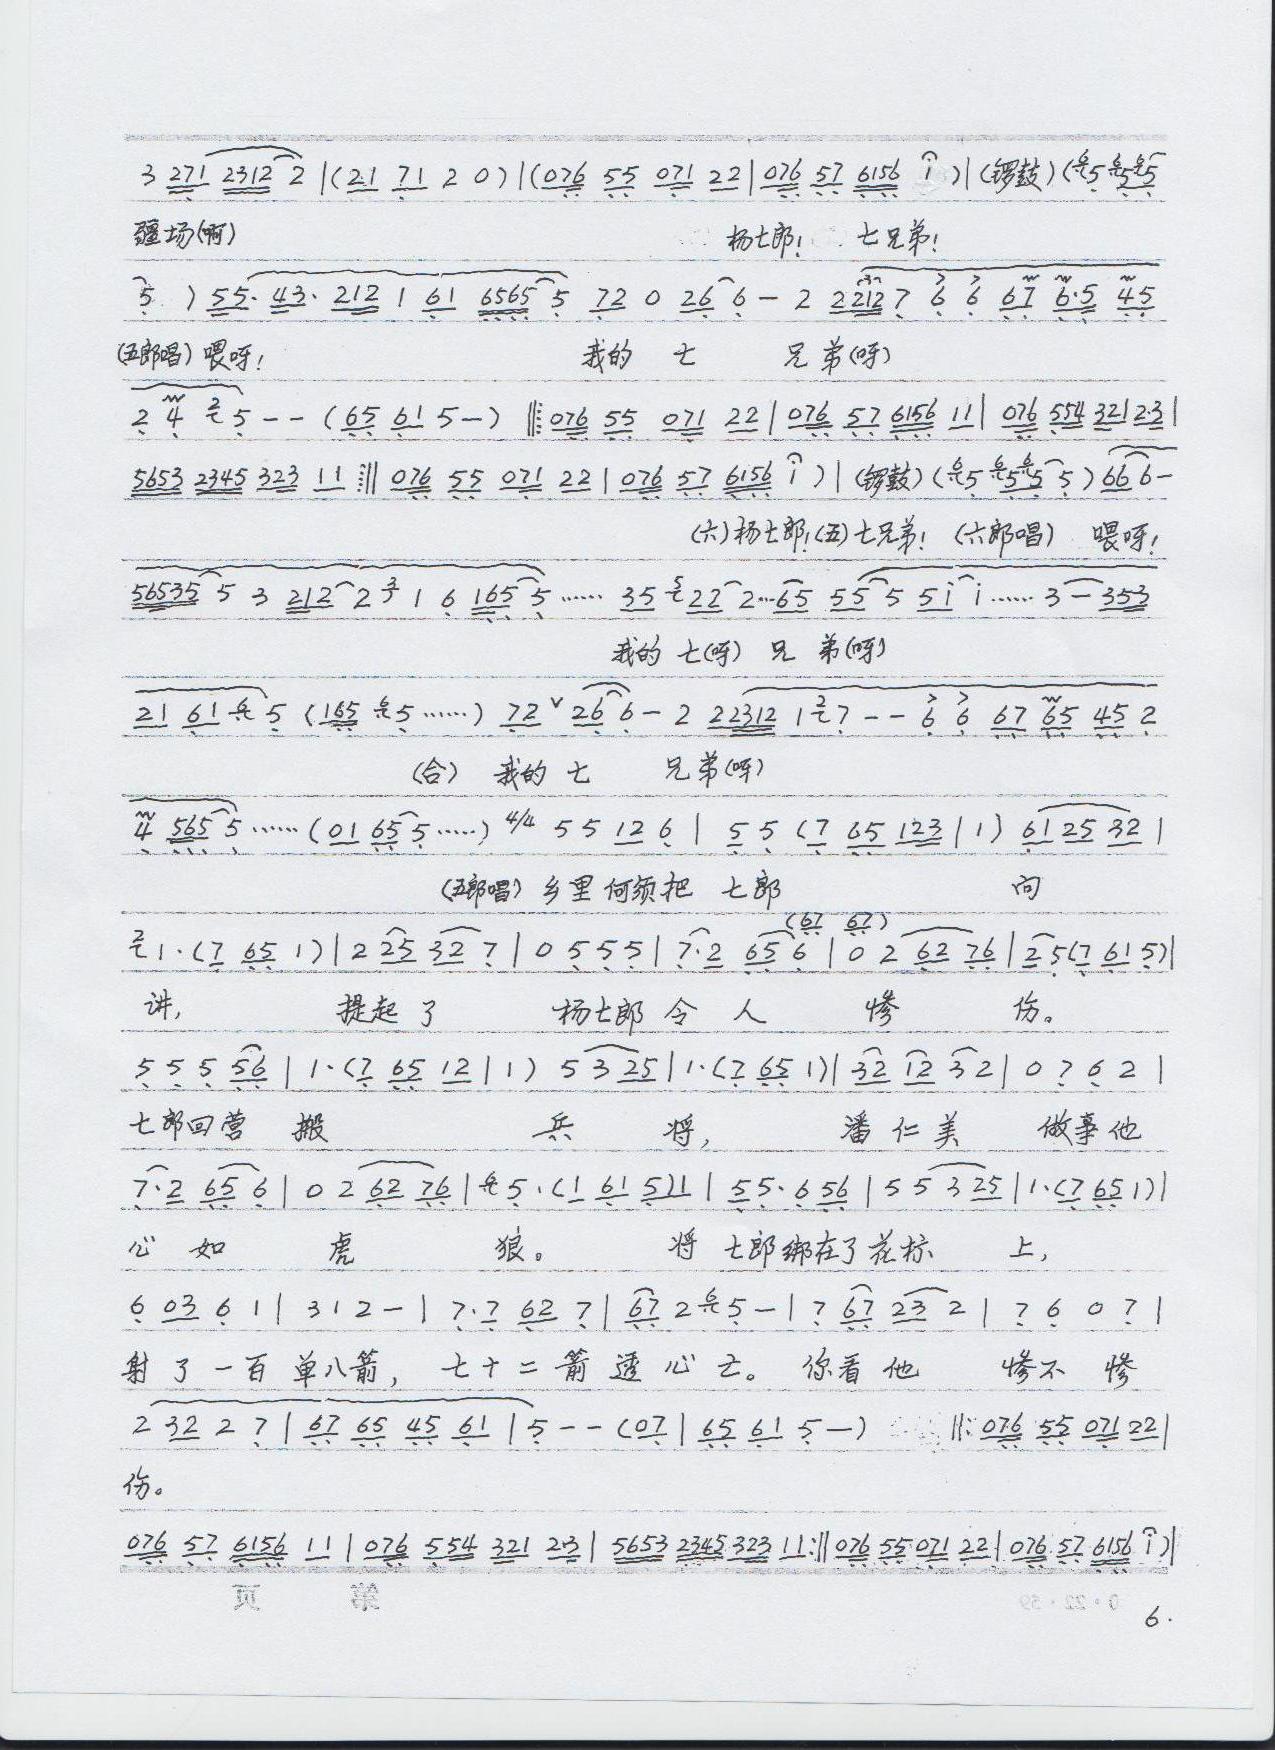 3 271 2312 2 |(21 71 2 0)|(076 55 071 22|076 57 6156 i)|(锣鼓)(5 5 5
疆场(啊) 杨七郎! 七兄弟!
5 ) 55· 43· 212 1 61 6565 5 72 0 26 6 - 2 2212 7 6 6 67 6·5 45
(五郎唱) 喂呀! 我的 七 兄弟(呀)
2 4 2 5 - - (65 61 5 -) ‖: 076 55 071 22 | 076 57 6156 11 | 076 554 321 2·3 |
5653 2345 323 11 :‖ 076 55 071 22 | 076 57 6156 i ) | (锣鼓) (5 5 5 5 ) 66 6 -
(六)杨七郎!(五)七兄弟! (六郎唱) 喂呀!
56535 5 3 212 2 3 1 6 165 5 …… 35 5 22 2 … 65 55 5 5i i …… 3 - 353
我的 七(呀) 兄 弟(呀)
21 61 5 (165 5 ……) 72 ∨ 26 6 - 2 22312 1 2 7 - - 6 6 67 65 45 2
(合) 我的 七 兄弟(呀)
4 565 5 …… (01 65 5 ……) 4/4 5 5 12 6 | 5 5 (7 65 123 | 1) 61 25 32 |
(五郎唱) 乡里何须把 七郎 向
(67 67)
2 1·(7 65 1)| 2 25 32 7 | 0 5 5 5 | 7·2 65 6 | 0 2 62 76 | 2 5 (7 61 5)|
讲, 提起了 杨七郎令人 惨 伤。
5 5 5 56 | 1·(7 65 12 | 1) 5 3 25 | 1·(7 65 1)| 32 12 3 2 | 0 7 6 2 |
七郎回营 搬 兵 将, 潘仁美 做事他
7·2 65 6 | 0 2 62 76 | 5·(1 61 5)1 | 55· 6 56 | 5 5 3 25 | 1·(7 65 1)|
心如 虎 狼。 将 七郎绑在了花标 上,
6 03 6 1 | 3 1 2 - | 7·7 62 7 | 67 2 5 - | 7 67 23 2 | 7 6 0 7 |
射了一百单八箭, 七十二箭透心亡。你看他 惨不惨
2 32 2 7 | 67 65 45 61 | 5 - - (07 | 65 61 5 -) ‖: 076 55 071 22 |
伤。
076 57 6156 11 | 076 554 321 2·3 | 5653 2345 323 11 :‖ 076 55 071 22 | 076 57 6156 i )|
第 页
0·22·59
6.